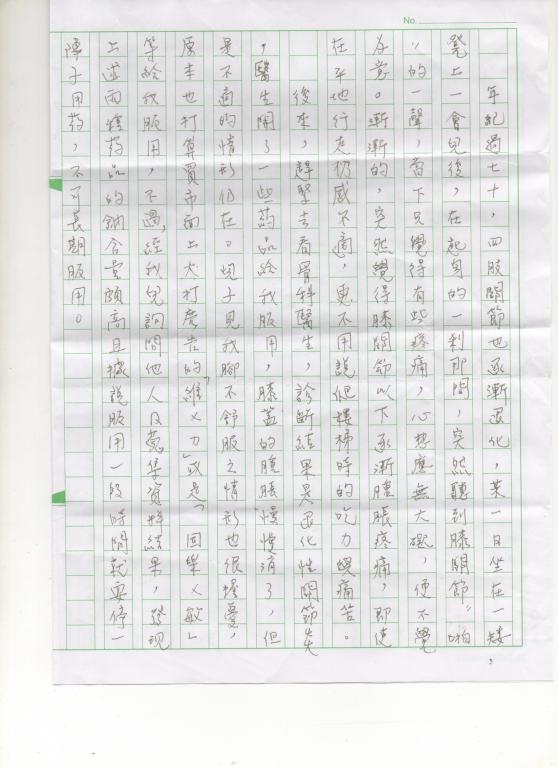 No.
年紀過七十，四肢關節也逐漸退化，某一日坐在一矮
凳上一會兒後，在起身的一剎那間，突然聽到膝關節“啪
”的一聲，當下只覺得有些疼痛，心想應無大礙，便不覺
為意。漸漸的，突然覺得膝關節以下逐漸腫脹疼痛，即使
在平地行走仍感不適，更不用說爬樓梯時的吃力與痛苦。
後來，趕緊去看骨科醫生，診斷結果是退化性關節炎
，醫生開了一些葯品給我服用，膝蓋的腫脹慢慢消了，但
是不適的情形仍在。兒子見我腳不舒服之情形也很擔憂，
原本也打算買市面上大打廣告的「維X力」或是「固樂X敏」
等給我服用，不過，經我兒詢問他人及蒐集資料結果，發現
上述兩種葯品的鈉含量頗高且據說服用一段時間就要停一
陣子用葯，不可長期服用。